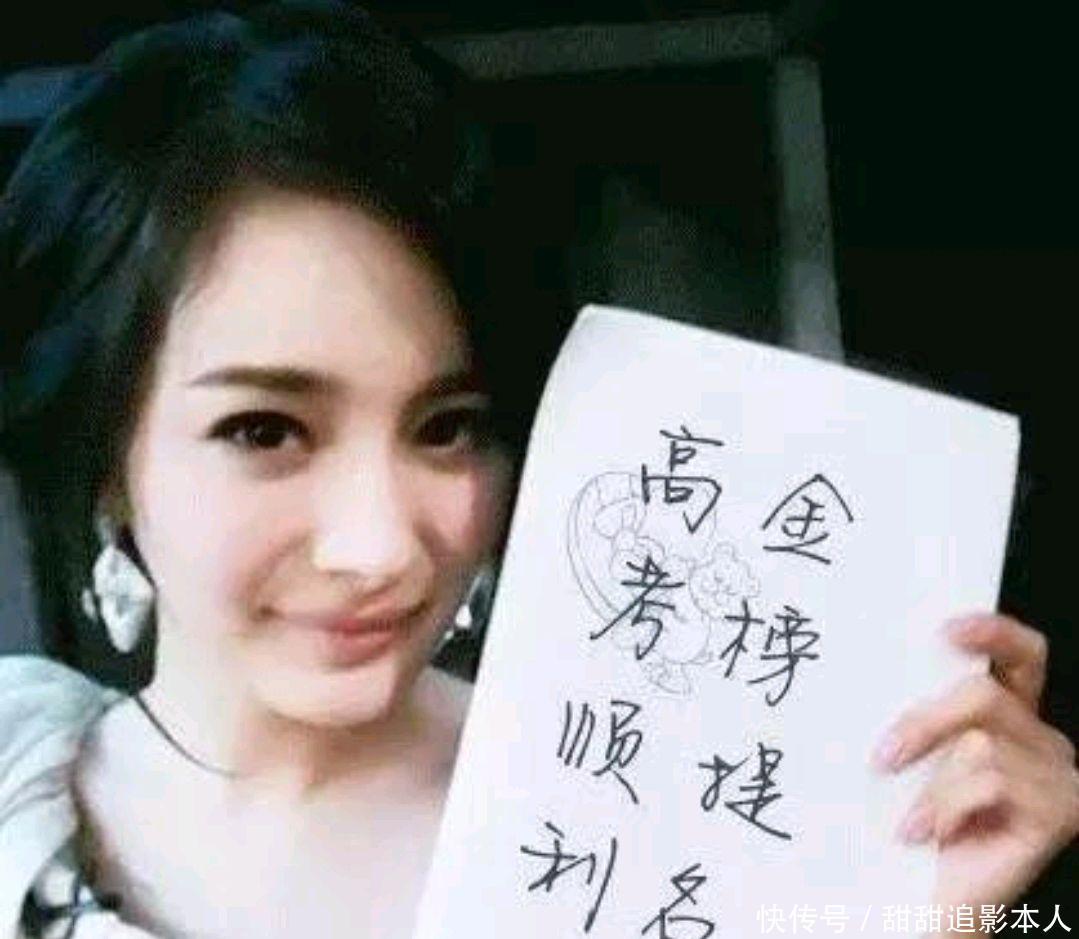 高考顺利
金榜提名
快传号 / 甜甜追影本人